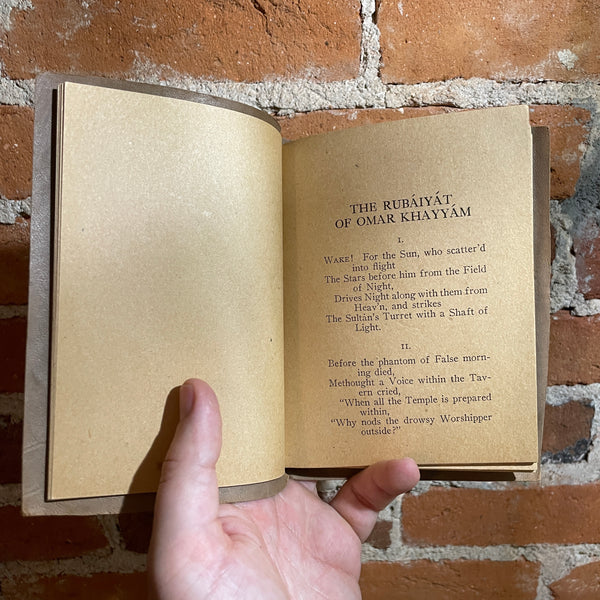 THE RUBÁIYÁT
OF OMAR KHAYYÁM
I.
WAKE! For the Sun, who scatter'd
into flight
The Stars before him from the Field
of Night,
Drives Night along with them from
Heav'n, and strikes
The Sultán's Turret with a Shaft of
Light.
II.
Before the phantom of False morn-
ing died,
Methought a Voice within the Tav-
ern cried,
“When all the Temple is prepared
within,
“Why nods the drowsy Worshipper
outside?”